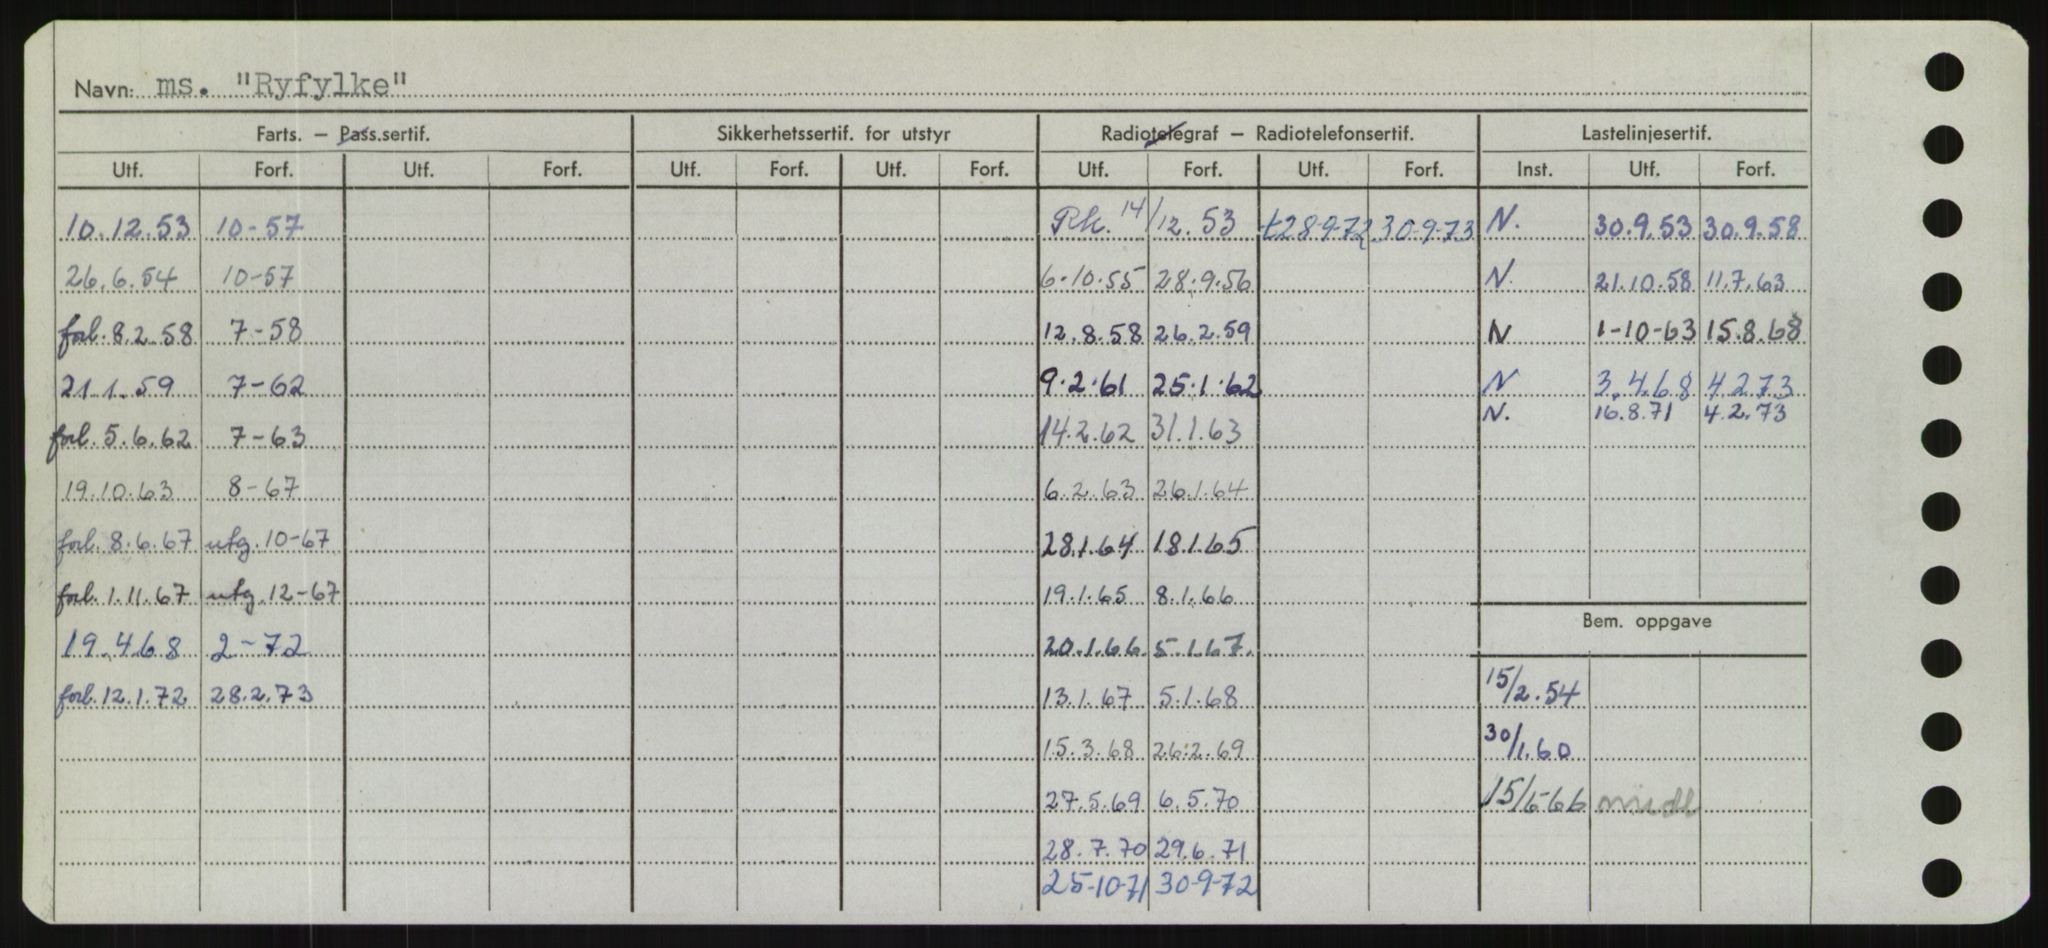 Navn: ms. "Ryfylke"
Farts. — Pass.sertif. Sikkerhetssertif. for utstyr Radiotelegraf — Radiotelefonsertif. Lastelinjesertif.
Utf. Forf. Utf. Forf. Utf. Forf. Utf. Forf. Utf. Forf. Utf. Forf. Inst. Utf. Forf.
10.12.53 10-57 Rk. 14/12.53 t28-9-72 30-9-73 N. 30.9.53 30.9.58
26.6.54 10-57 6.10.55 28.9.56 N. 21.10.58 11.7.63
forl. 8.2.58 7-58 12.8.58 26.2.59 N 1-10-63 15.8.68
21.1.59 7-62 9.2.61 25.1.62 N 3.4.68 4.2.73
N. 16.8.71 4.2.73
forl. 5.6.62 7-63 14.2.62 31.1.63
19.10.63 8-67 6.2.63 26.1.64
forl. 8.6.67 utg. 10-67 28.1.64 18.1.65
forl. 1.11.67 utg. 12-67 19.1.65 8.1.66
Bem. oppgave
19.4.68 2-72 20.1.66 5.1.67.
forl. 12.1.72 28.2.73 13.1.67 5.1.68 15/2.54
15.3.68 26.2.69 30/1.60
27.5.69 6.5.70 15/5-66
28.7.70 29.6.71
25-10-71 30-9-72